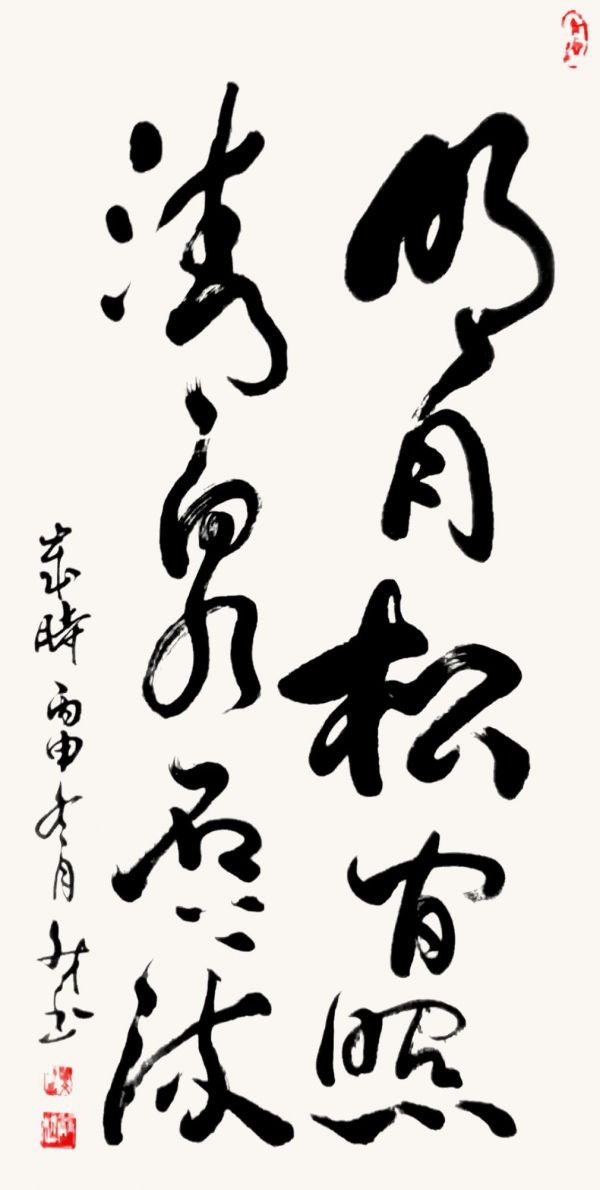 明月松間照
清泉石上流
歲時丙申冬月